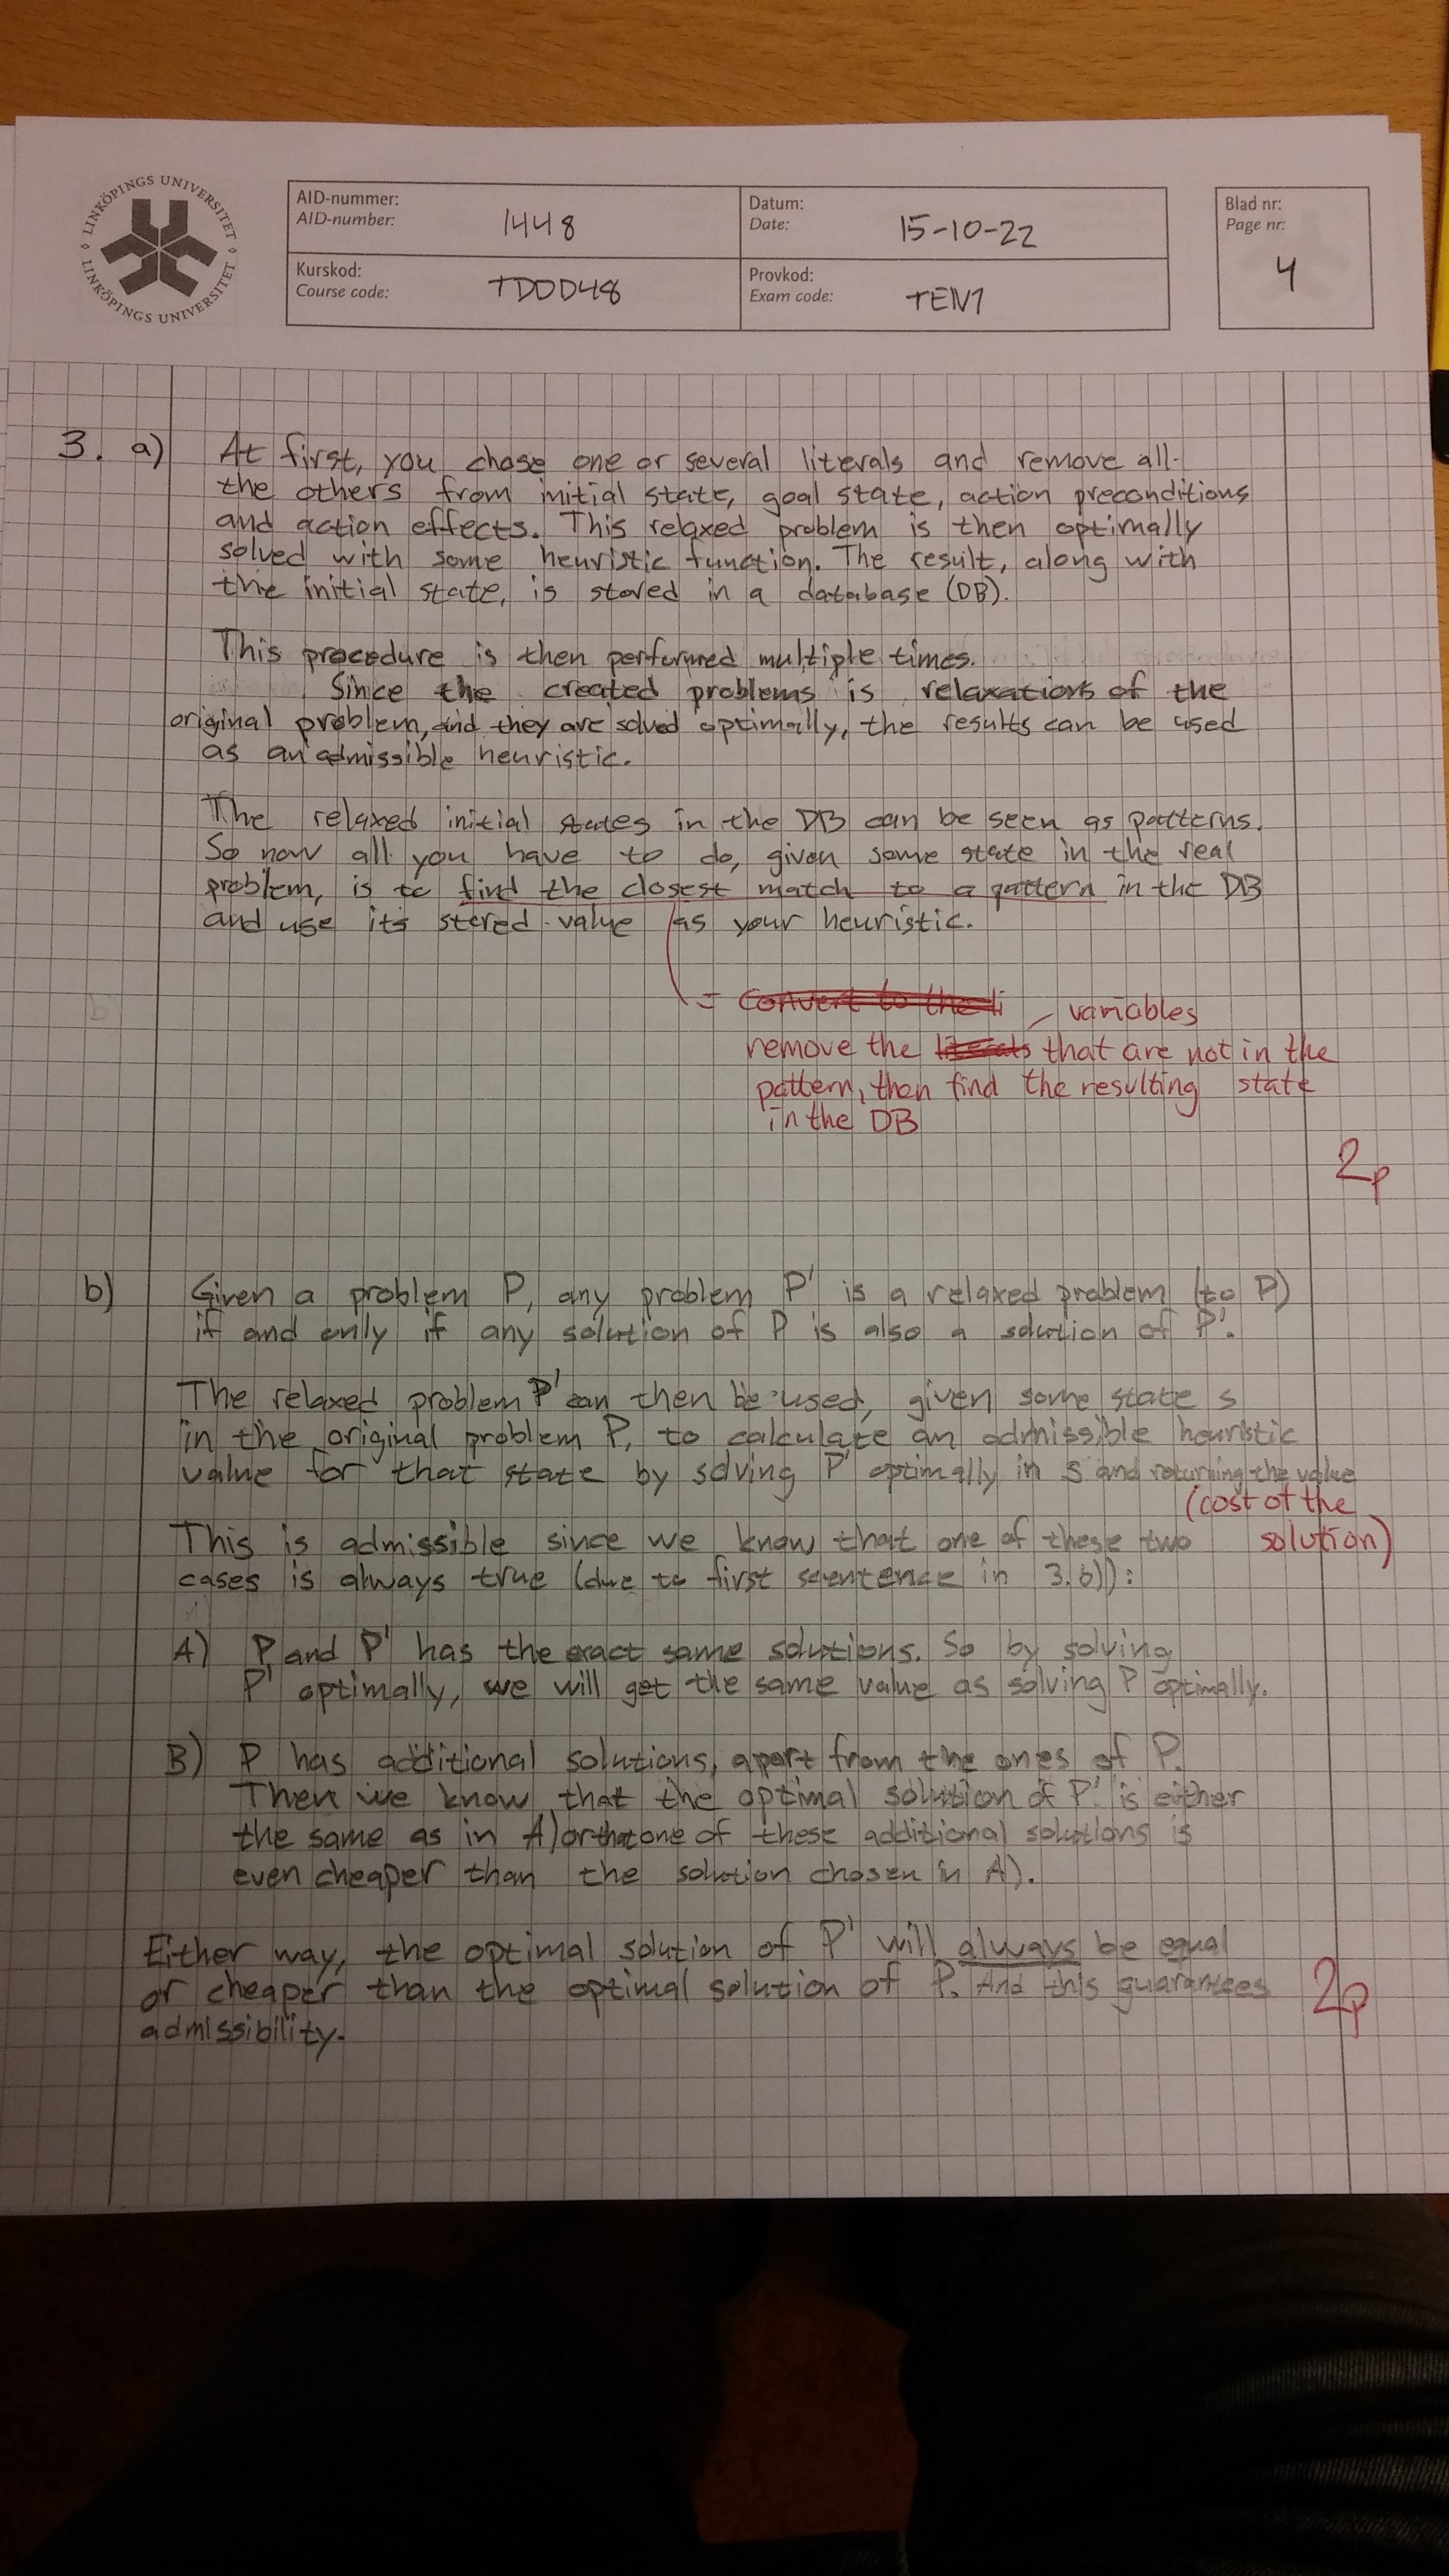 LINKÖPINGS UNIVERSITET
LINKÖPINGS UNIVERSITET
AID-nummer:
AID-number: 1448
Datum:
Date: 15-10-22
Blad nr:
Page nr:
4
Kurskod:
Course code: TDDD48
Provkod:
Exam code: TEN1
3. a) At first, you chose one or several literals and remove all
the others from initial state, goal state, action preconditions
and action effects. This relaxed problem is then optimally
solved with some heuristic function. The result, along with
the initial state, is stored in a database (DB).
This procedure is then performed multiple times.
Since the created problems is relaxations of the
original problem, and they are solved optimally, the results can be used
as an admissible heuristic.
The relaxed initial states in the DB can be seen as patterns.
So now all you have to do, given some state in the real
problem, is to find the closest match to a pattern in the DB
and use its stored value as your heuristic.
= Convert to the li
variables
remove the literals that are not in the
pattern, then find the resulting state
in the DB
2p
b) Given a problem P, any problem P' is a relaxed problem (to P)
if and only if any solution of P is also a solution of P'.
The relaxed problem P' can then be used, given some state s
in the original problem P, to calculate an admissible heuristic
value for that state by solving P' optimally in s and returning the value
(cost of the
solution)
This is admissible since we know that one of these two
cases is always true (due to first sentence in 3.b)):
A) P and P' has the exact same solutions. So by solving
P' optimally, we will get the same value as solving P optimally.
B) P has additional solutions, apart from the ones of P.
Then we know that the optimal solution of P' is either
the same as in A) or that one of these additional solutions is
even cheaper than the solution chosen in A).
Either way, the optimal solution of P' will always be equal
or cheaper than the optimal solution of P. And this guarantees
admissibility.
2p